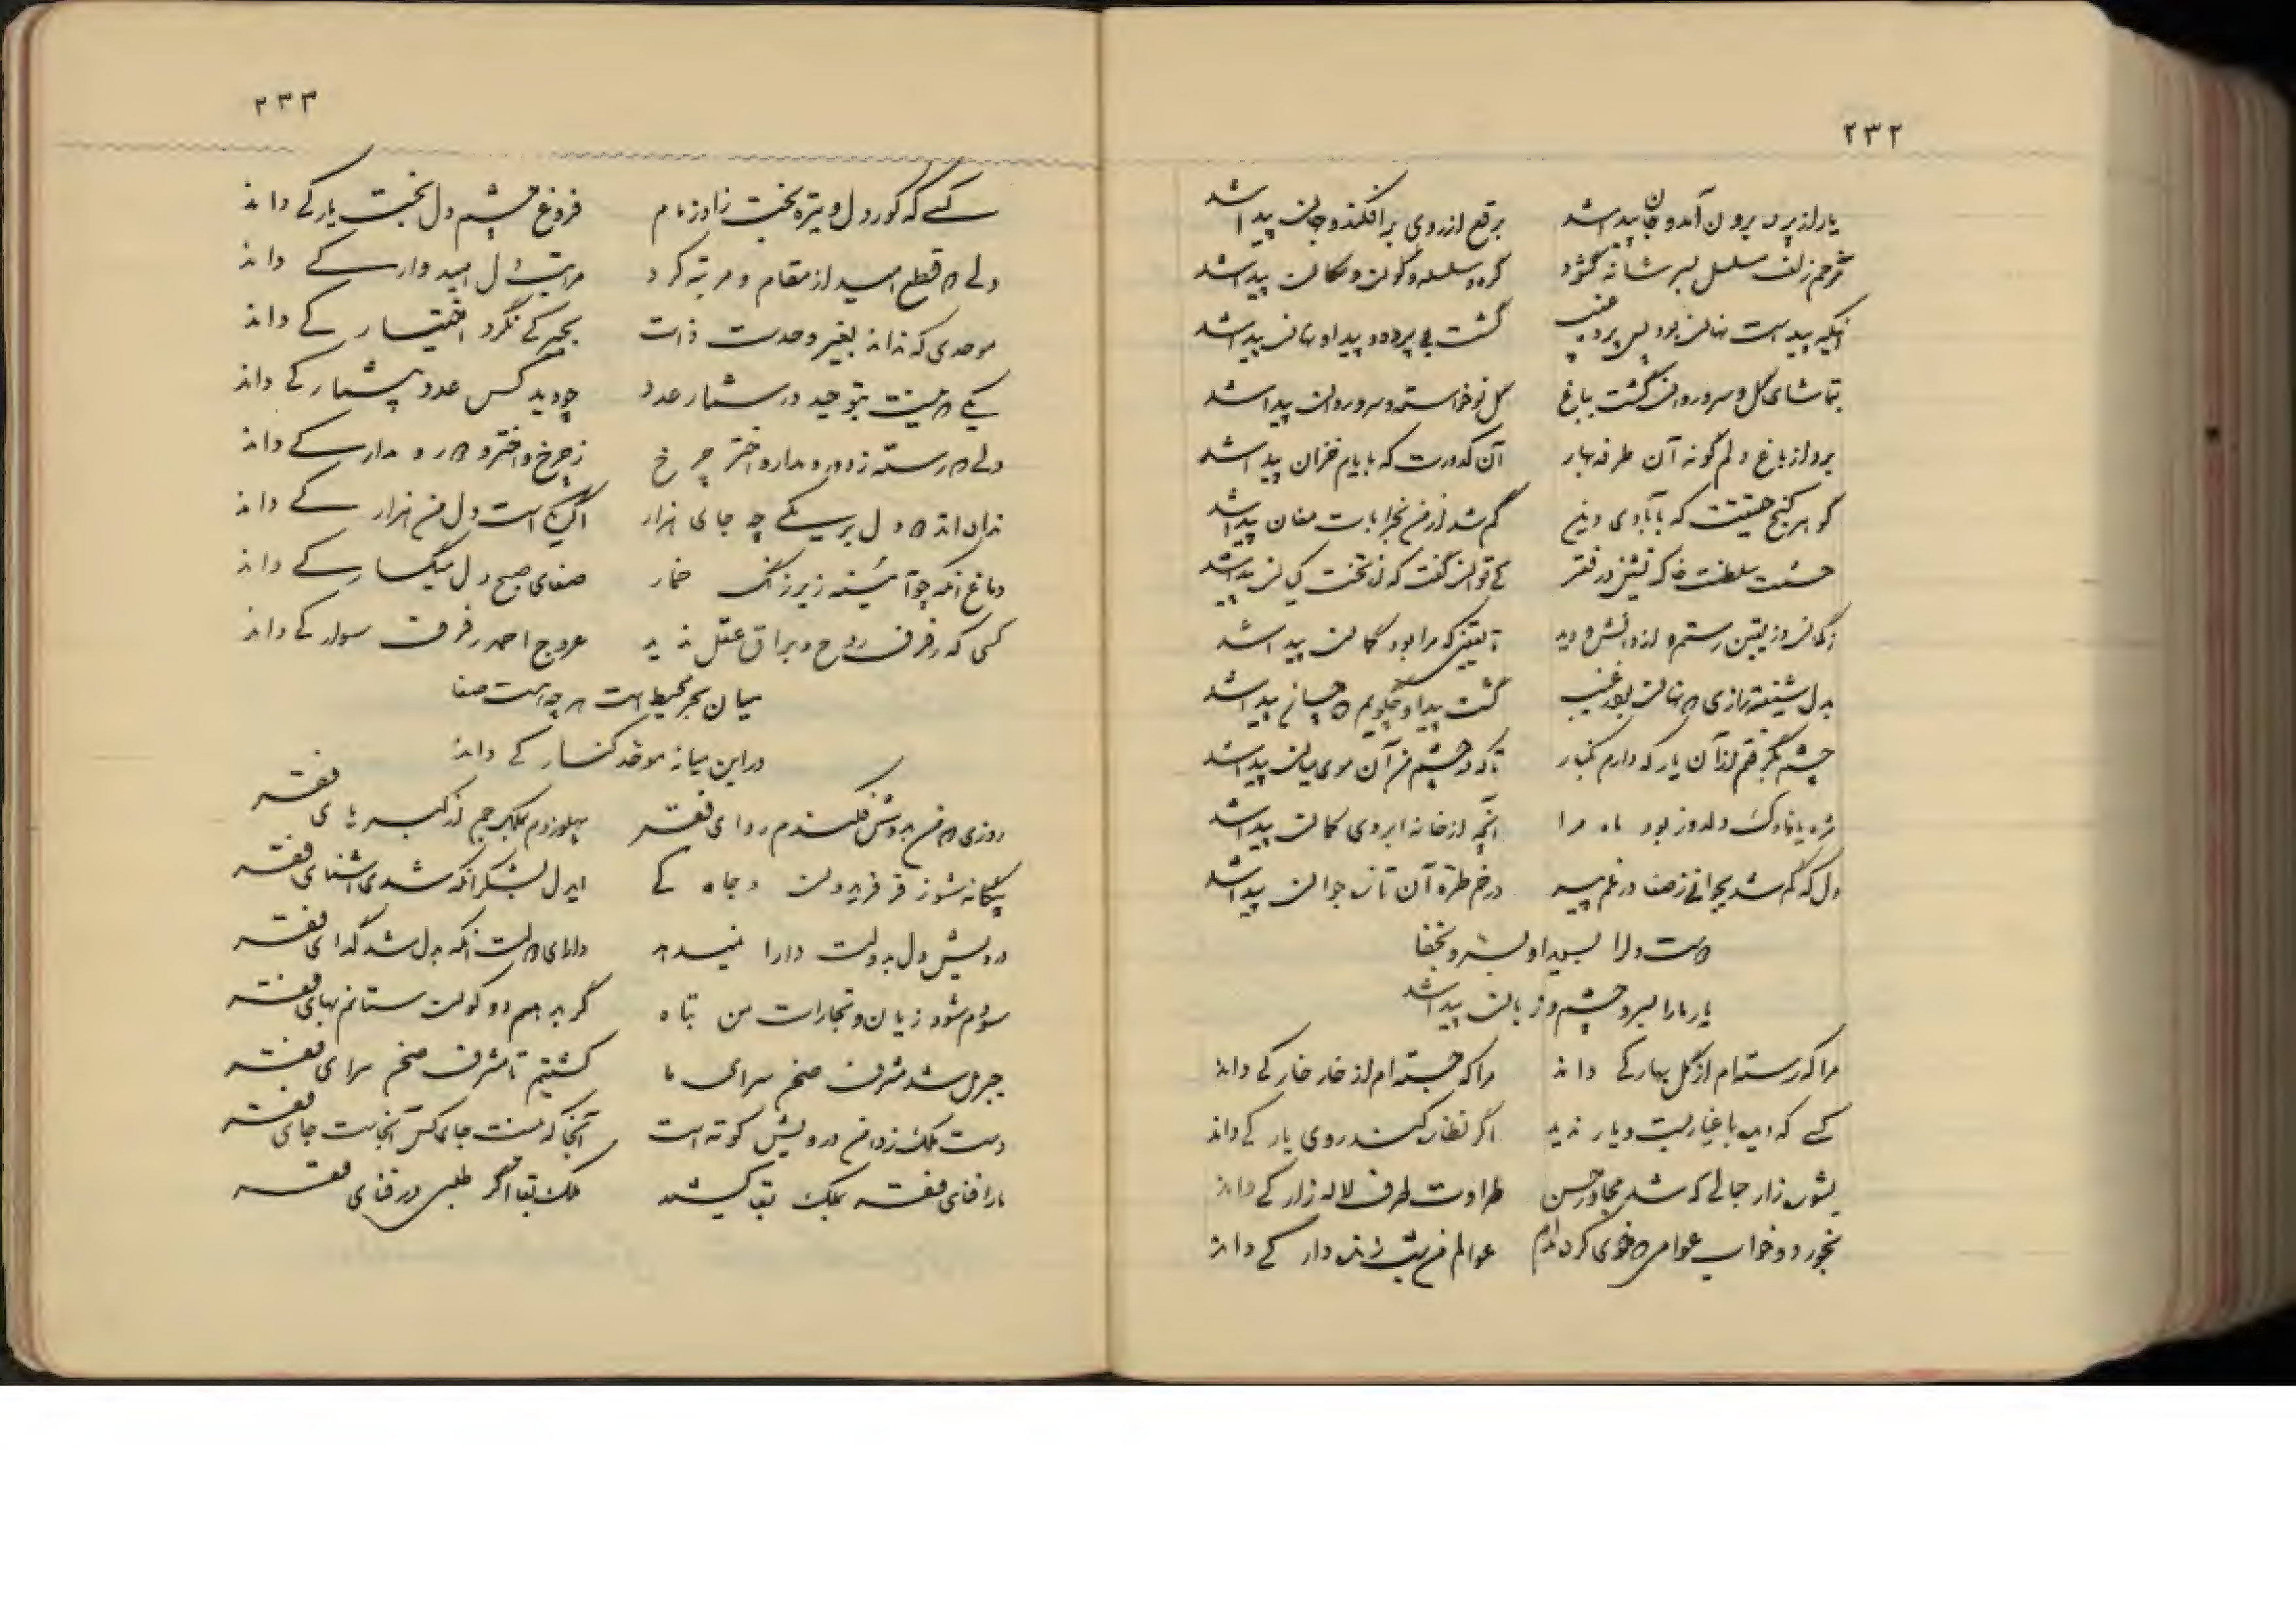 ۲۳۲
یار از پرده برون آمد و جان پیدا شد برقع از روی برافکند و جهان پیدا شد
خم زلف مسلسل بسر شانه گشود گره و سلسله و کون و مکان پیدا شد
آنکه پیداست نهان بود پس پرده غیب گشت بی پرده و پیدا و نهان پیدا شد
بتماشای گل و سرو روان گشت بباغ گل نوخاسته و سرو روان پیدا شد
برد از باغ دلم گونه آن طرفه بهار آن کدورت که بایام خزان پیدا شد
گوهر گنج حقیقت که بآبادی دین گم شد از من بخرابات مغان پیدا شد
حشمت سلطنت خاک نشین در فقر کی توان گفت که از تخت کیان پیدا شد
از گمان وز یقین رستم و از دانش و دید تا یقینی که مرا بود گمان پیدا شد
بدل شیفته رازی که نهان بود ز غیب گشت پیدا و چگویم که چسان پیدا شد
چشم بگرفتم از آن یار که دارم بکنار تا که در چشم من آن موی میان پیدا شد
مژه یا ناوک دلدوز بود ماه مرا آنچه از خانه ابروی کمان پیدا شد
دل که گم شد بجوانی ز صفا در غم پیر در خم طره آن تازه جوان پیدا شد
دست و پا
یار ما را بسر و چشم و زبان پیدا شد
مرا که رسته ام از گل بهار کی داند مرا که جسته ام از خار خار کی داند
کسی که دیده باغیار بست و یار ندید اگر نظاره کند روی یار کی داند
زار جمالی که شد مجاور حسن طراوت طرف لاله زار کی داند
بخورد و خواب عوامی که خوی کرد مدام عوالم من شب زنده دار کی داند
۲۳۳
کسی که کور دل و تیره بخت زاد ز مام فروغ چشم دل بخت یار کی داند
دلی که قطع امید از مقام و مرتبه کرد مراتب دل امیدوار کی داند
موحدی که نداند بغیر وحدت ذات بجبر کی نگرد اختیار کی داند
یکی که نیست بتوحید در شمار عدد چو دید کس عدد بیشمار کی داند
دلی که رسته ز دور و مدار و اختر چرخ ز چرخ و اختر و دور و مدار کی داند
یکی چه جای هزار یکی است دل من هزار کی داند
دماغ آنکه چو آئینه زیر زنگ خمار صفای صبح دل میگسار کی داند
کسی که رفرف روح و براق عقل ندید عروج احمد رفرف سوار کی داند
میان بحر محیط است هر چه هست صفا
در این میانه موحد کنار کی داند
روزی که من بدوش فکندم ردای فقر پهلو زدم بملک جم از کبریای فقر
بیگانه شو ز فر فریدون و جاه کی ایدل بشکر آنکه شدی آشنای فقر
درویش دل بدولت دارا نمیدهد دارای دولت آنکه بدل شد گدای فقر
سودم شود زیان و تجارات من تباه گر بدهم دو کون ستانم بهای فقر
جبریل شد مشرف صحن سرای ما گشتیم تا مشرف صحن سرای فقر
دست ملک ز دامن درویش کوته است آنجا که نیست جای کس آنجاست جای فقر
ما را فنای فقر بملک بقا کشید ملک بقا اگر طلبی در فنای فقر